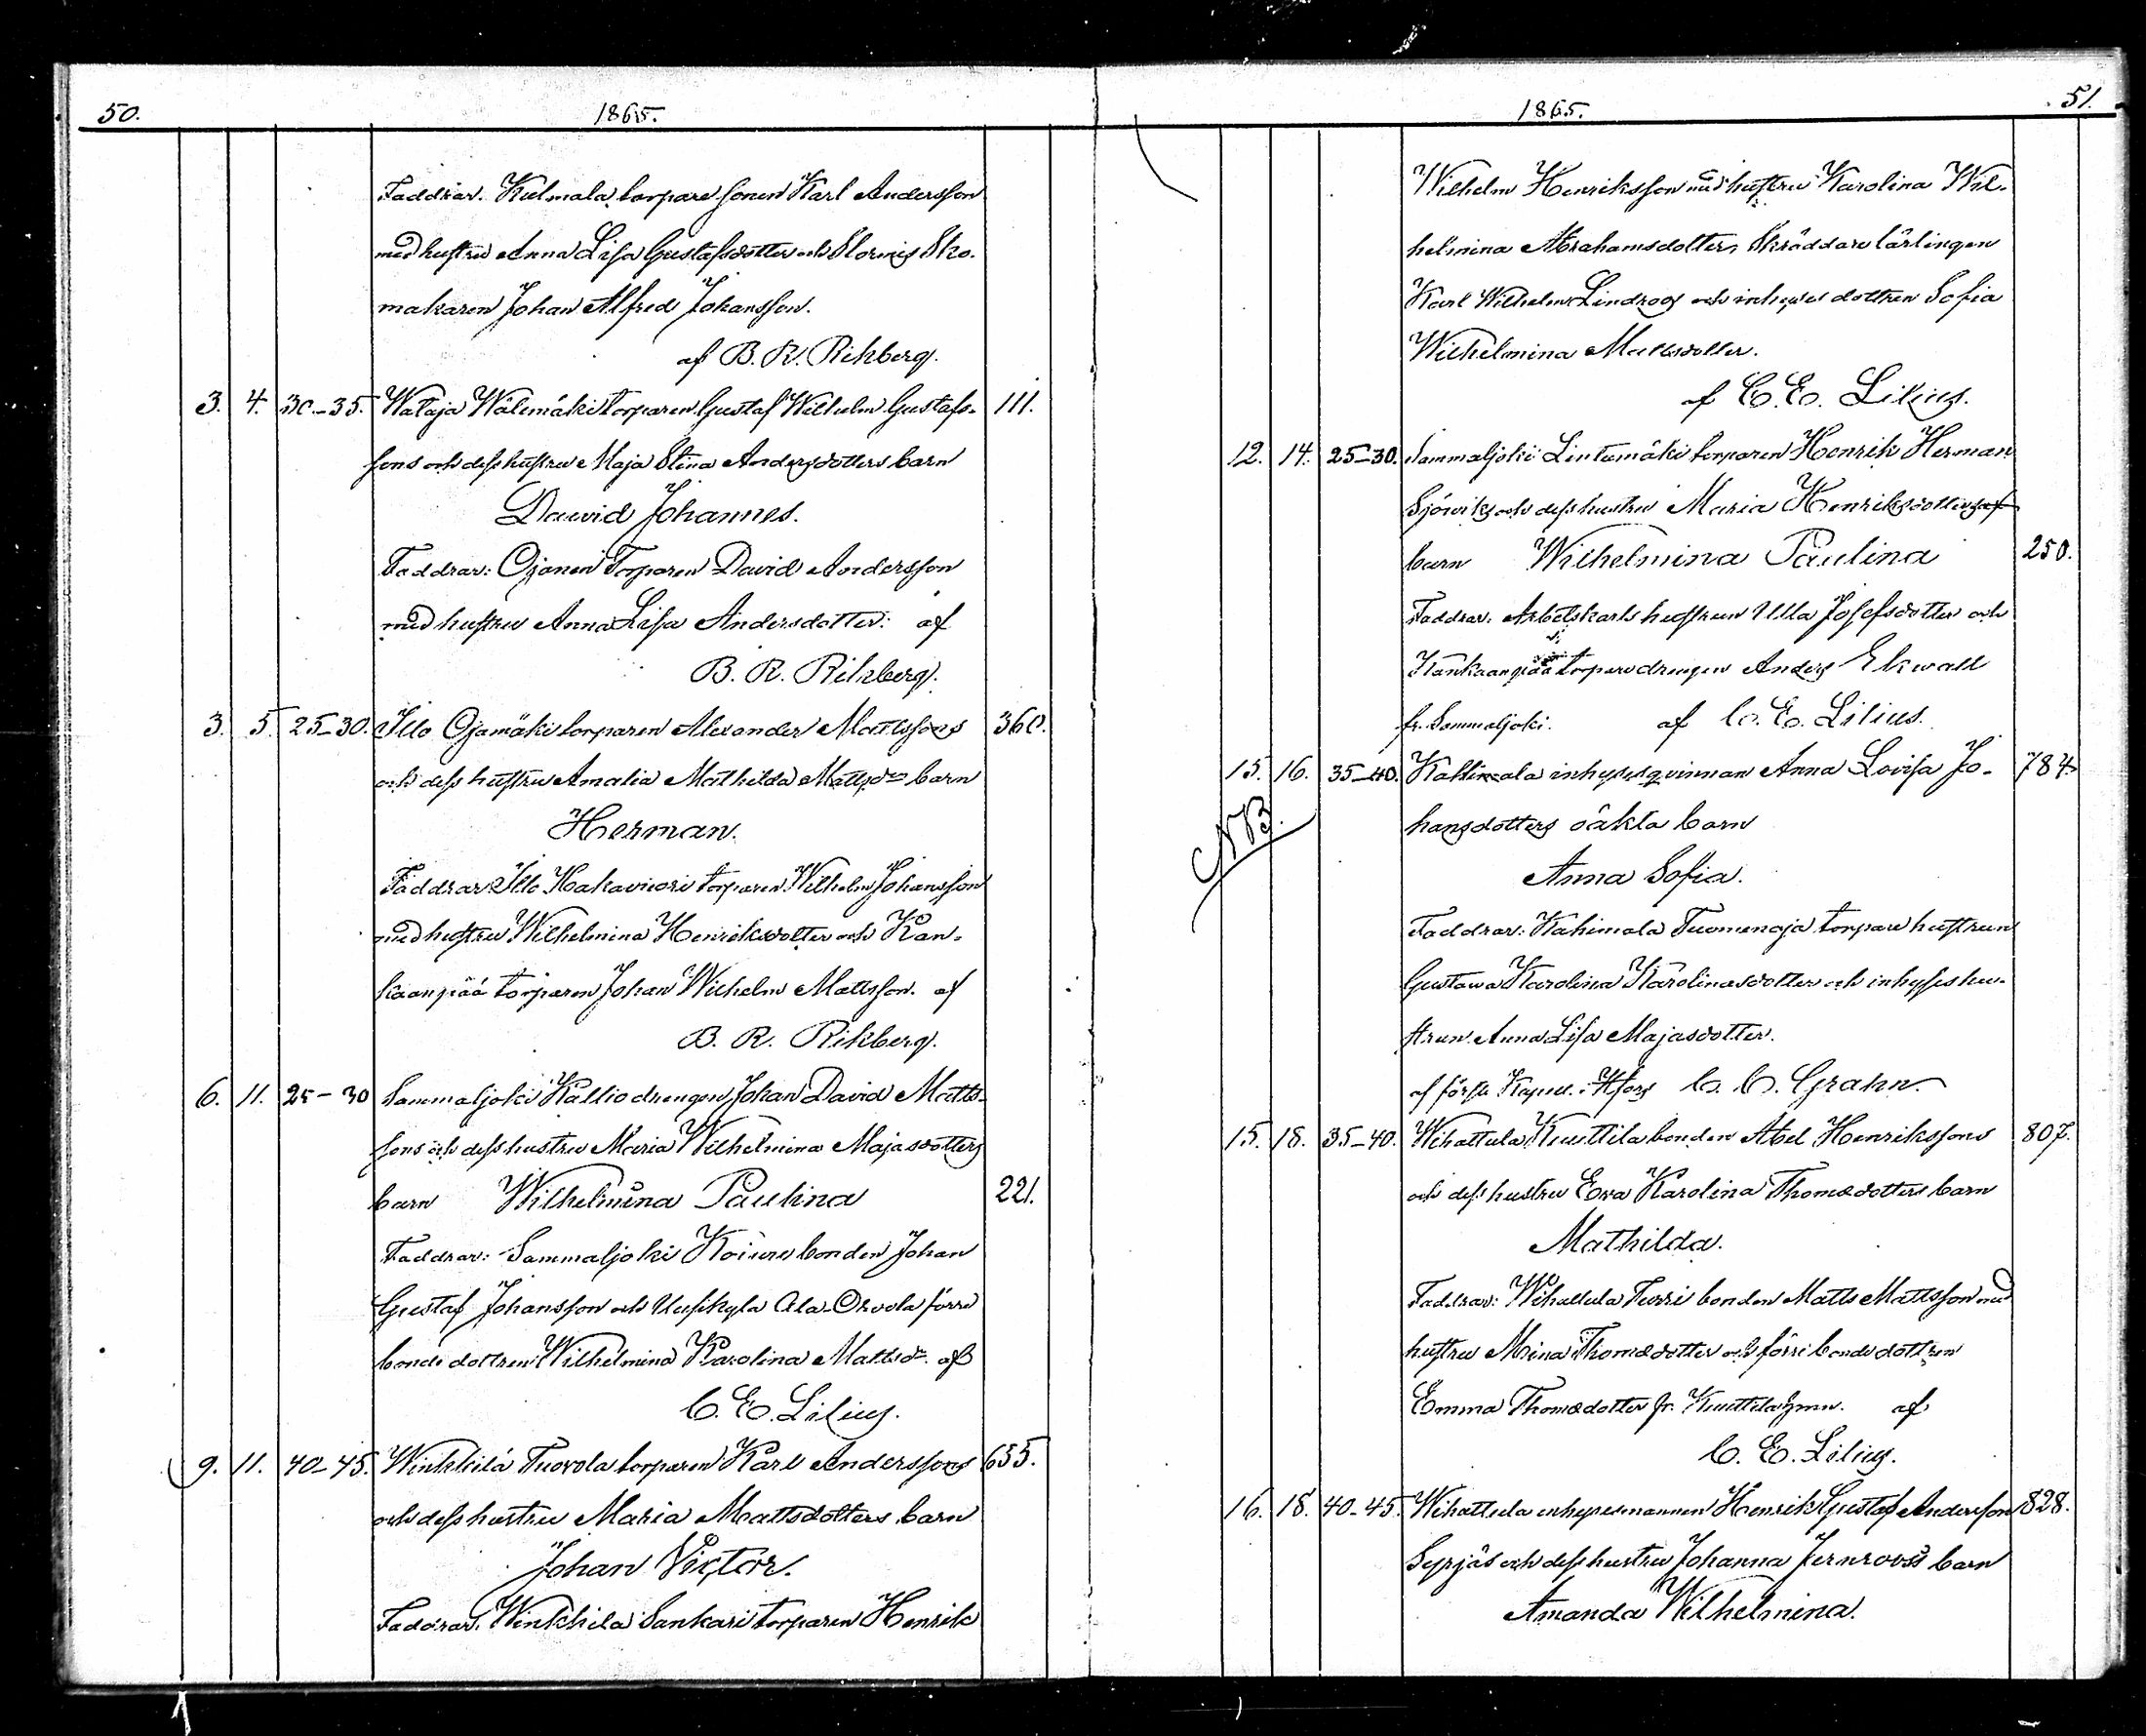 50.
1865.
Faddrar. Kulmala torpare sonen Karl Andersson
med hustru Anna Lisa Gustafsdotter och Stormis Sko-
makaren Johan Alfred Johansson.
af B. R. Rikberg.
3. 4. 30-35. Wataja Wälimäki torparen Gustaf Wilhelm Gustafs- 111.
sons och dess hustru Maja Stina Andersdotters barn
Dawid Johannes.
Faddrar: Ojanen Torparen David Andersson
med hustru Anna Lisa Andersdotter: af
B. R. Rikberg.
3. 5. 25-30. Illo Ojamäki torparen Alexander Mattssons 360.
och dess hustru Amalia Mathilda Mattsdr barn
Herman.
Faddrar Illo Hakavuori torparen Wilhelm Johansson
med hustru Wilhelmina Henriksdotter och Kan-
kaanpää torparen Johan Wilhelm Mattsson. af
B. R. Rikberg.
6. 11. 25-30 Sammaljoki Kallio drengen Johan David Matts-
sons och dess hustru Maria Wilhelmina Majasdotters
barn Wilhelmina Paulina 221.
Faddrar: Sammaljoki Koivu bonden Johan
Gustaf Johansson och Uusikyla Ala-Orvola förre
bonde dottren Wilhelmina Karolina Mattsdr. af
C. E. Lilius.
9. 11. 40-45. Winkkilä Tuorola torparen Karl Anderssons 655.
och dess hustru Maria Mattsdotters barn
Johan Victor.
Faddrar. Winkkila Sankari torparen Henrik
1865.
51.
Wilhelm Henriksson med hustru Karolina Wil-
helmina Abrahamsdotter, Skräddare lärlingen
Karl Wilhelm Lindroos och inhyses dottren Sofia
Wilhelmina Mattsdotter.
af C. E. Lilius.
12. 14. 25-30. Sammaljoki Lintumäki torparen Henrik Herman
Sjöviks och dess hustru Maria Henriksdotters af
barn Wilhelmina Paulina 250.
Faddrar: Arbetskarls hustrun Ulla Josefsdotter och
Kankaanpää torparedrengen Anders Ekwall
fr. Sammaljoki. af C. E. Lilius.
15. 16. 35-40. inhysesqvinnan Anna Lovisa Jo- 784.
NB.
hansdotters oäkta barn
Anna Sofia.
Faddrar: Kahimala Tuomenoja torpare hustrun
Gustava Karolina Karolinasdotter och inhyses hu-
strun Anna Lisa Majasdotter.
af förste Kapell. i Hfors C. C. Grahn.
15. 18. 35-40. Wihattula Knuttila bonden Abel Henrikssons 807.
och dess hustru Eva Karolina Thomasdotters barn
Mathilda.
Faddrar: Wihattula Turri bonden Matts Mattsson med
hustru Mina Thomasdotter och förre bonde dottren
Emma Thomasdotter fr. Knuttila hmn. af
C. E. Lilius.
16. 18. 40-45. Wihattula inhysesmannen Henrik Gustaf Andersson 828.
Syrjäs och dess hustru Johanna Jernroos's barn
Amanda Wilhelmina.